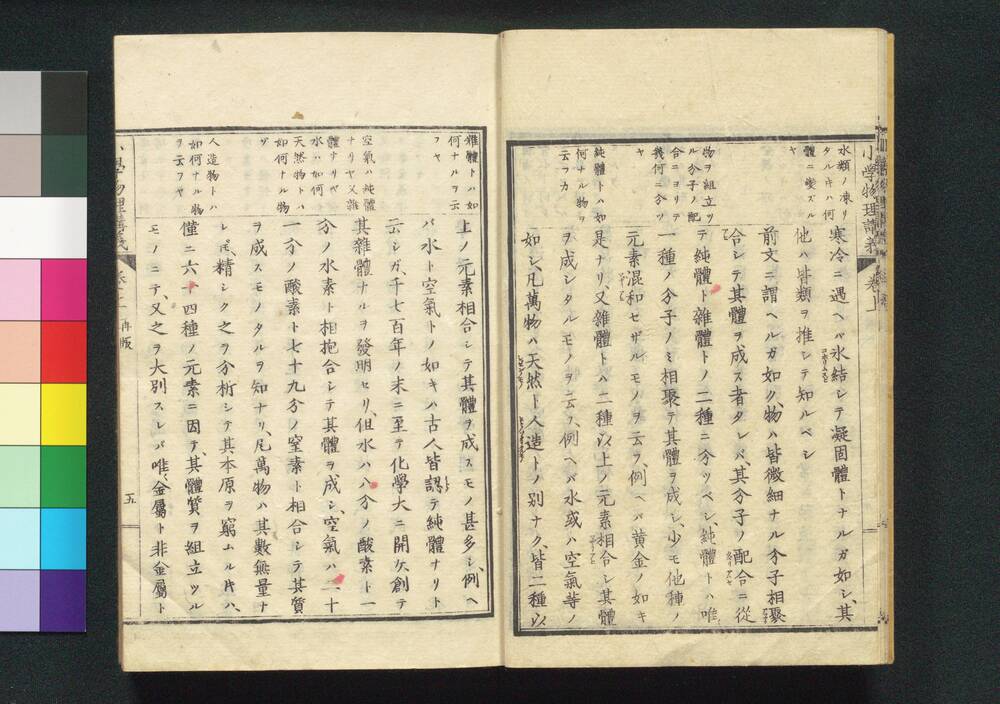 小學物理講義 卷上
水類ノ凍リ
タルキハ何
體ニ變ズル
ヤ
物ヲ組立ツ
ル分子ノ配
合ニヨリテ
幾何ニ分ツ
ヤ
純體トハ如
何ナル物ヲ
云フカ
寒冷ニ遇ヘバ氷結シテ凝固體トナルガ如シ、其
他ハ皆類ヲ推シテ知ルベシ
前文ニ謂ヘルガ如ク、物ハ皆微細ナル分子相聚
合シテ其體ヲ成ス者タレバ、其分子ノ配合ニ從
テ純體ト雜體トノ二種ニ分ツベシ、純體トハ唯
一種ノ分子ノミ相聚テ其體ヲ成シ、少モ他種ノ
元素混和セザルモノヲ云フ、例ヘバ黄金ノ如キ
是ナリ、又雜體トハ二種以上ノ元素相合シ其體
ヲ成シタルモノヲ云フ、例ヘバ水或ハ空氣等ノ
如シ、凡萬物ハ天然ト人造トノ別ナク、皆二種以
雜體トハ如
何ナルヲ云
フヤ
空氣ハ純體
ナリヤ又雜
體ナリヤ
水ハ如何
天然物トハ
如何ナル物
ゾ
人造物トハ
如何ナル物
ヲ云フヤ
上ノ元素相合シテ其體ヲ成スモノ甚多シ、例ヘ
バ水ト空氣トノ如キハ古人皆認テ純體ナリト
云シガ、千七百年ノ末ニ至テ化學大ニ開ケ創テ
其雜體ナルヲ發明セリ、但水ハ八分ノ酸素ト一
分ノ水素ト相抱合シテ其體ヲ成シ、空氣ハ二十
一分ノ酸素ト七十九分ノ窒素ト相合シテ其質
ヲ成スモノタルヲ知ナリ、凡萬物ハ其數無量ナ
レ𪜈、精シク之ヲ分析シテ其本原ヲ窮ムル片ハ、
僅ニ六十四種ノ元素ニ因テ、其體質ヲ組立ツル
モノニテ、又之ヲ大別スレバ唯、金屬ト非金屬ト
五